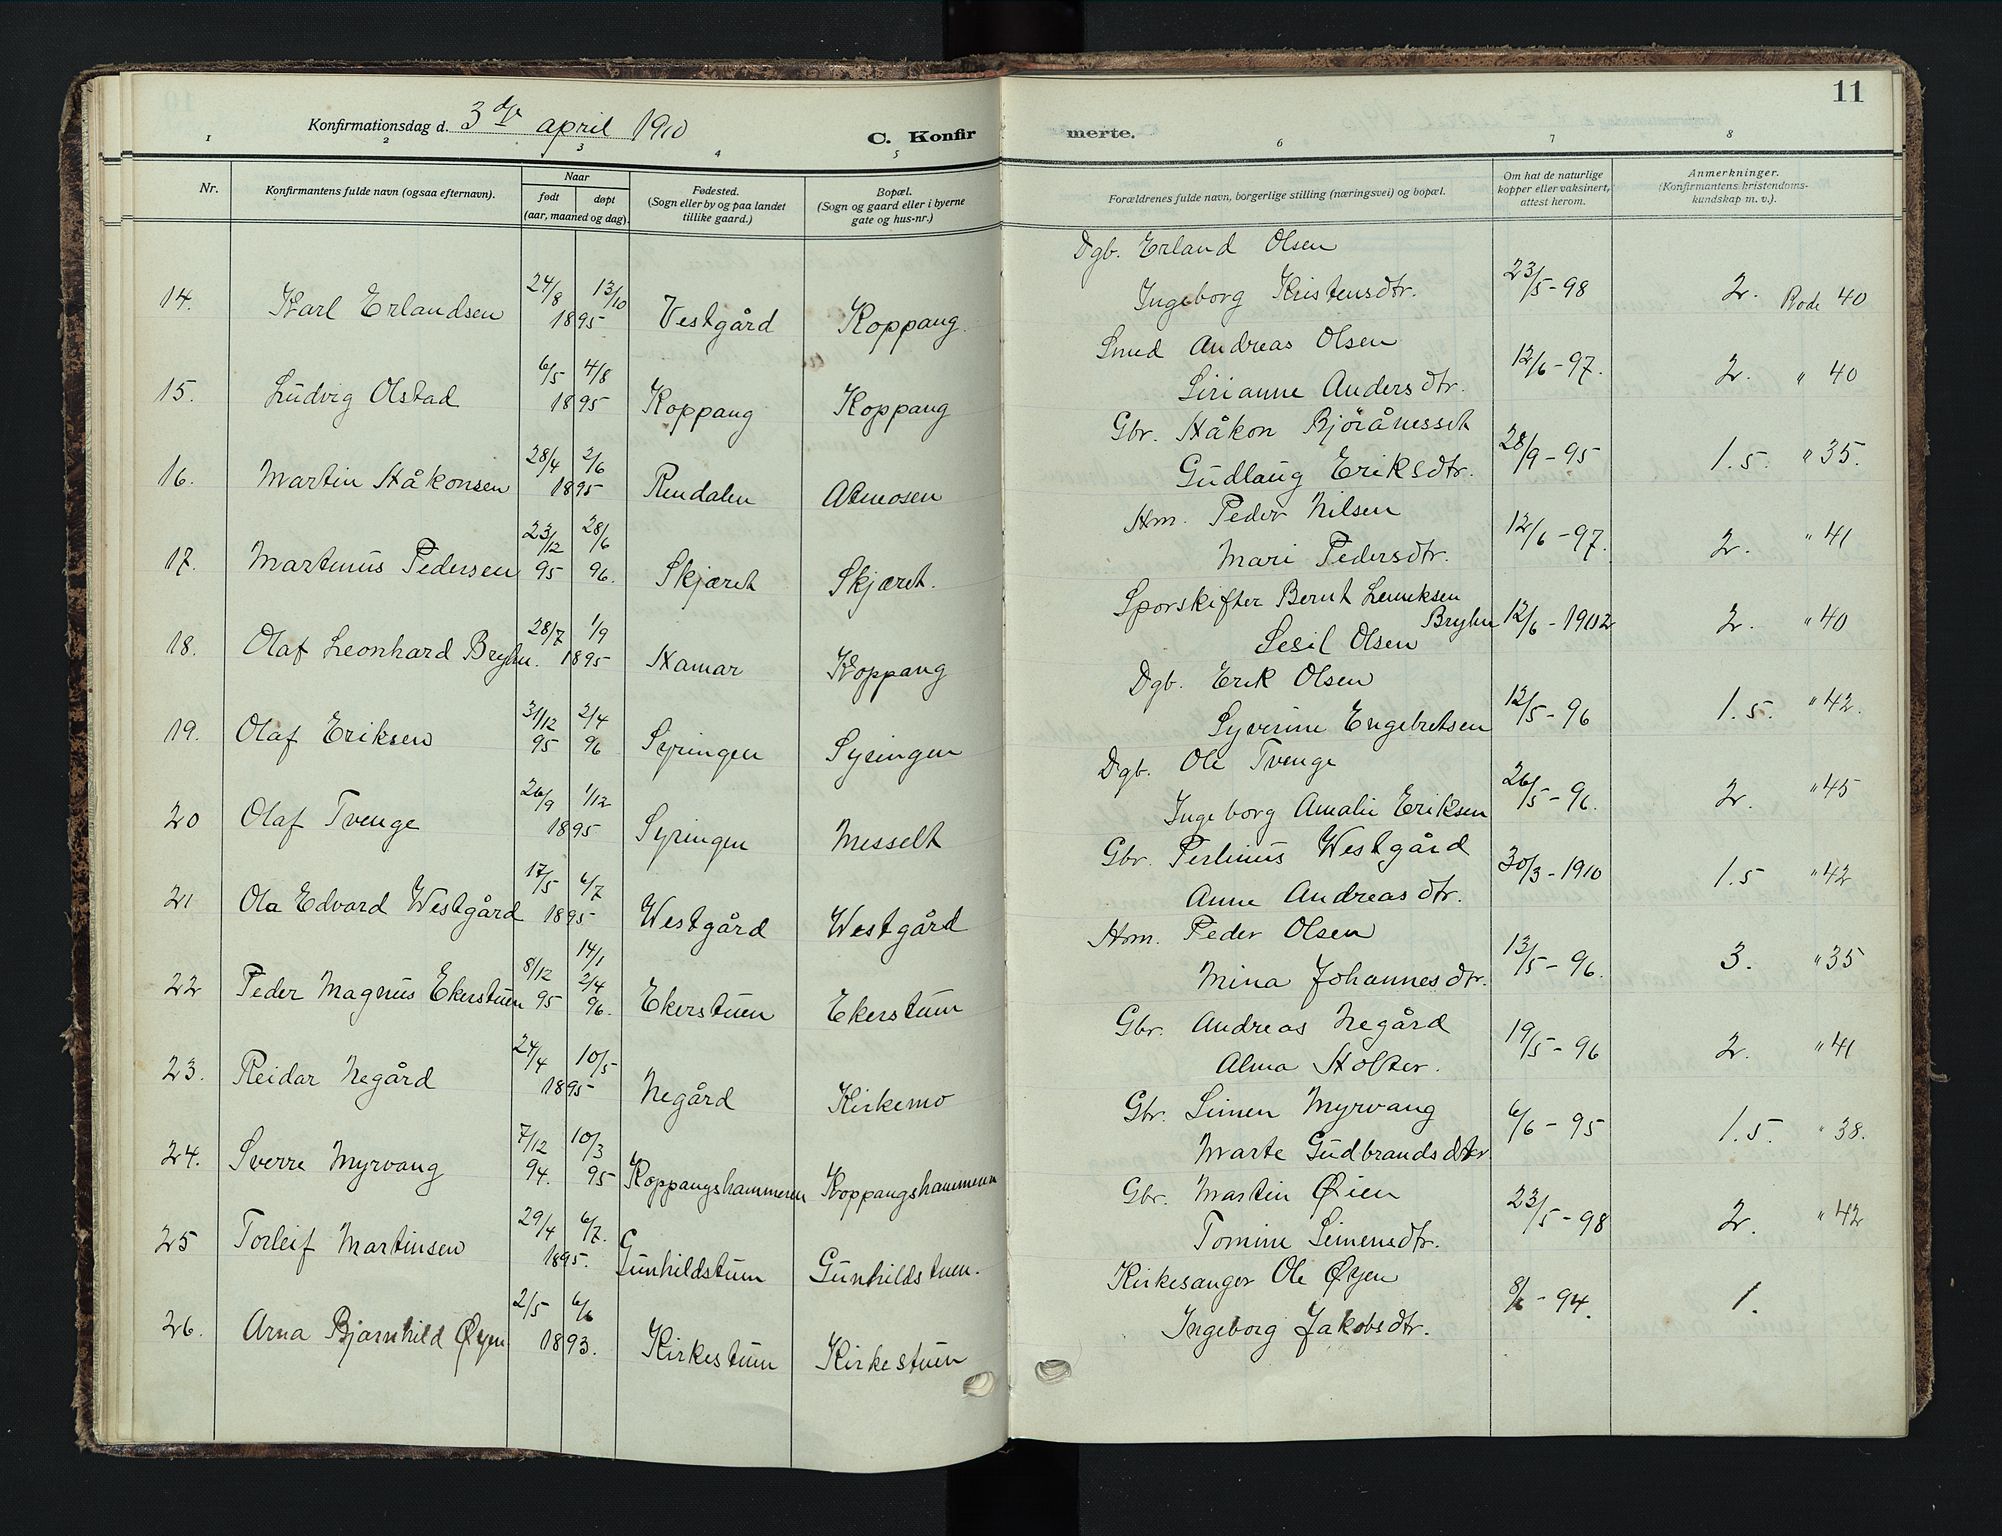 11
Konfirmationsdag d. 3die april 1910
C. Konfir
merte.
1 2 3 4 5 6 7 8
Nr.
Konfirmantens fulde navn (ogsaa efternavn).
Naar
født døpt
(aar, maaned og dag).
Fødested.
(Sogn eller by og paa landet
tillike gaard.)
Bopæl.
(Sogn og gaard eller i byerne
gate og hus-nr.)
Forældrenes fulde navn, borgerlige stilling (næringsvei) og bopæl.
Om hat de naturlige
kopper eller vaksinert,
attest herom.
Anmerkninger.
(Konfirmantens kristendoms-
kundskap m. v.).
Dgb. Erland Olsen
14. Karl Erlandsen 24/8 13/10 1895 Vestgård Koppang. Ingeborg Kristensdtr. 23/5-98 2. Rode 40
Smed Andreas Olsen
15. Ludvig Olstad 6/5 4/8 1895 Koppang Koppang Sirianne Andersdtr. 12/6-97. 2. " 40
Gbr. Håkon Bjøråneset
16. Martin Håkonsen 28/4 2/6 1895 Rendalen Atmosen Gudlaug Eriksdtr. 28/9-95 1.5. " 35.
Hm. Peder Nilsen
17. Martinus Pedersen 23/12 95 28/6 96. Skjæret Skjæret. Mari Pedersdtr. 12/6-97. 2. " 41
Sporskifter Bernt
Bryhn
18. Olaf Leonhard Bryhn. 28/7 1/9 1895 Hamar Koppang Sesil Olsen 12/6-1902 2. " 40
Dgb. Erik Olsen
19. Olaf Eriksen 31/12 95 2/4 96 Syringen Syringen Syverine Engebretsen 12/5-96 1.5. " 42.
Dgb. Ole Tvenge
20 Olaf Tvenge 26/9 1/12 1895 Syringen Messelt Ingeborg Amalie Eriksen 26/5-96. 2. " 45
Gbr. Perlinus Westgård
21 Ola Edvard Westgård 17/5 6/7 1895 Westgård Westgård Anne Andreasdtr. 30/3-1910 1.5 " 42
Hm. Peder Olsen
22 Peder Magnus Ekerstuen 8/12 95 14/1 2/4 96. Ekerstuen Ekerstuen Mina Johannesdtr. 13/5-96. 3. " 35
Gbr. Andreas Negård
23. Reidar Negård 24/4 10/5 1895 Negård Kirkemo Alma Holter. 19/5-96 2. " 41
Gbr. Simen Myrvang
24. Sverre Myrvang 7/12 94. 10/3 95 Koppangshammeren Koppangshammeren Marte Gudbrandsdtr. 6/6-95 1.5. " 38.
Gbr. Martin Øien
25 Torleif Martinsen 29/4 6/7. 1895. Gunhildstuen Gunhildstuen. Tomine Simensdtr. 23/5-98 2. " 42
Kirkesanger Ole Øyen
26. Arna Bjarnhild Øyen 2/5 6/6 1893. Kirkestuen Kirkestuen Ingeborg Jakobsdtr. 8/6-94. 1.